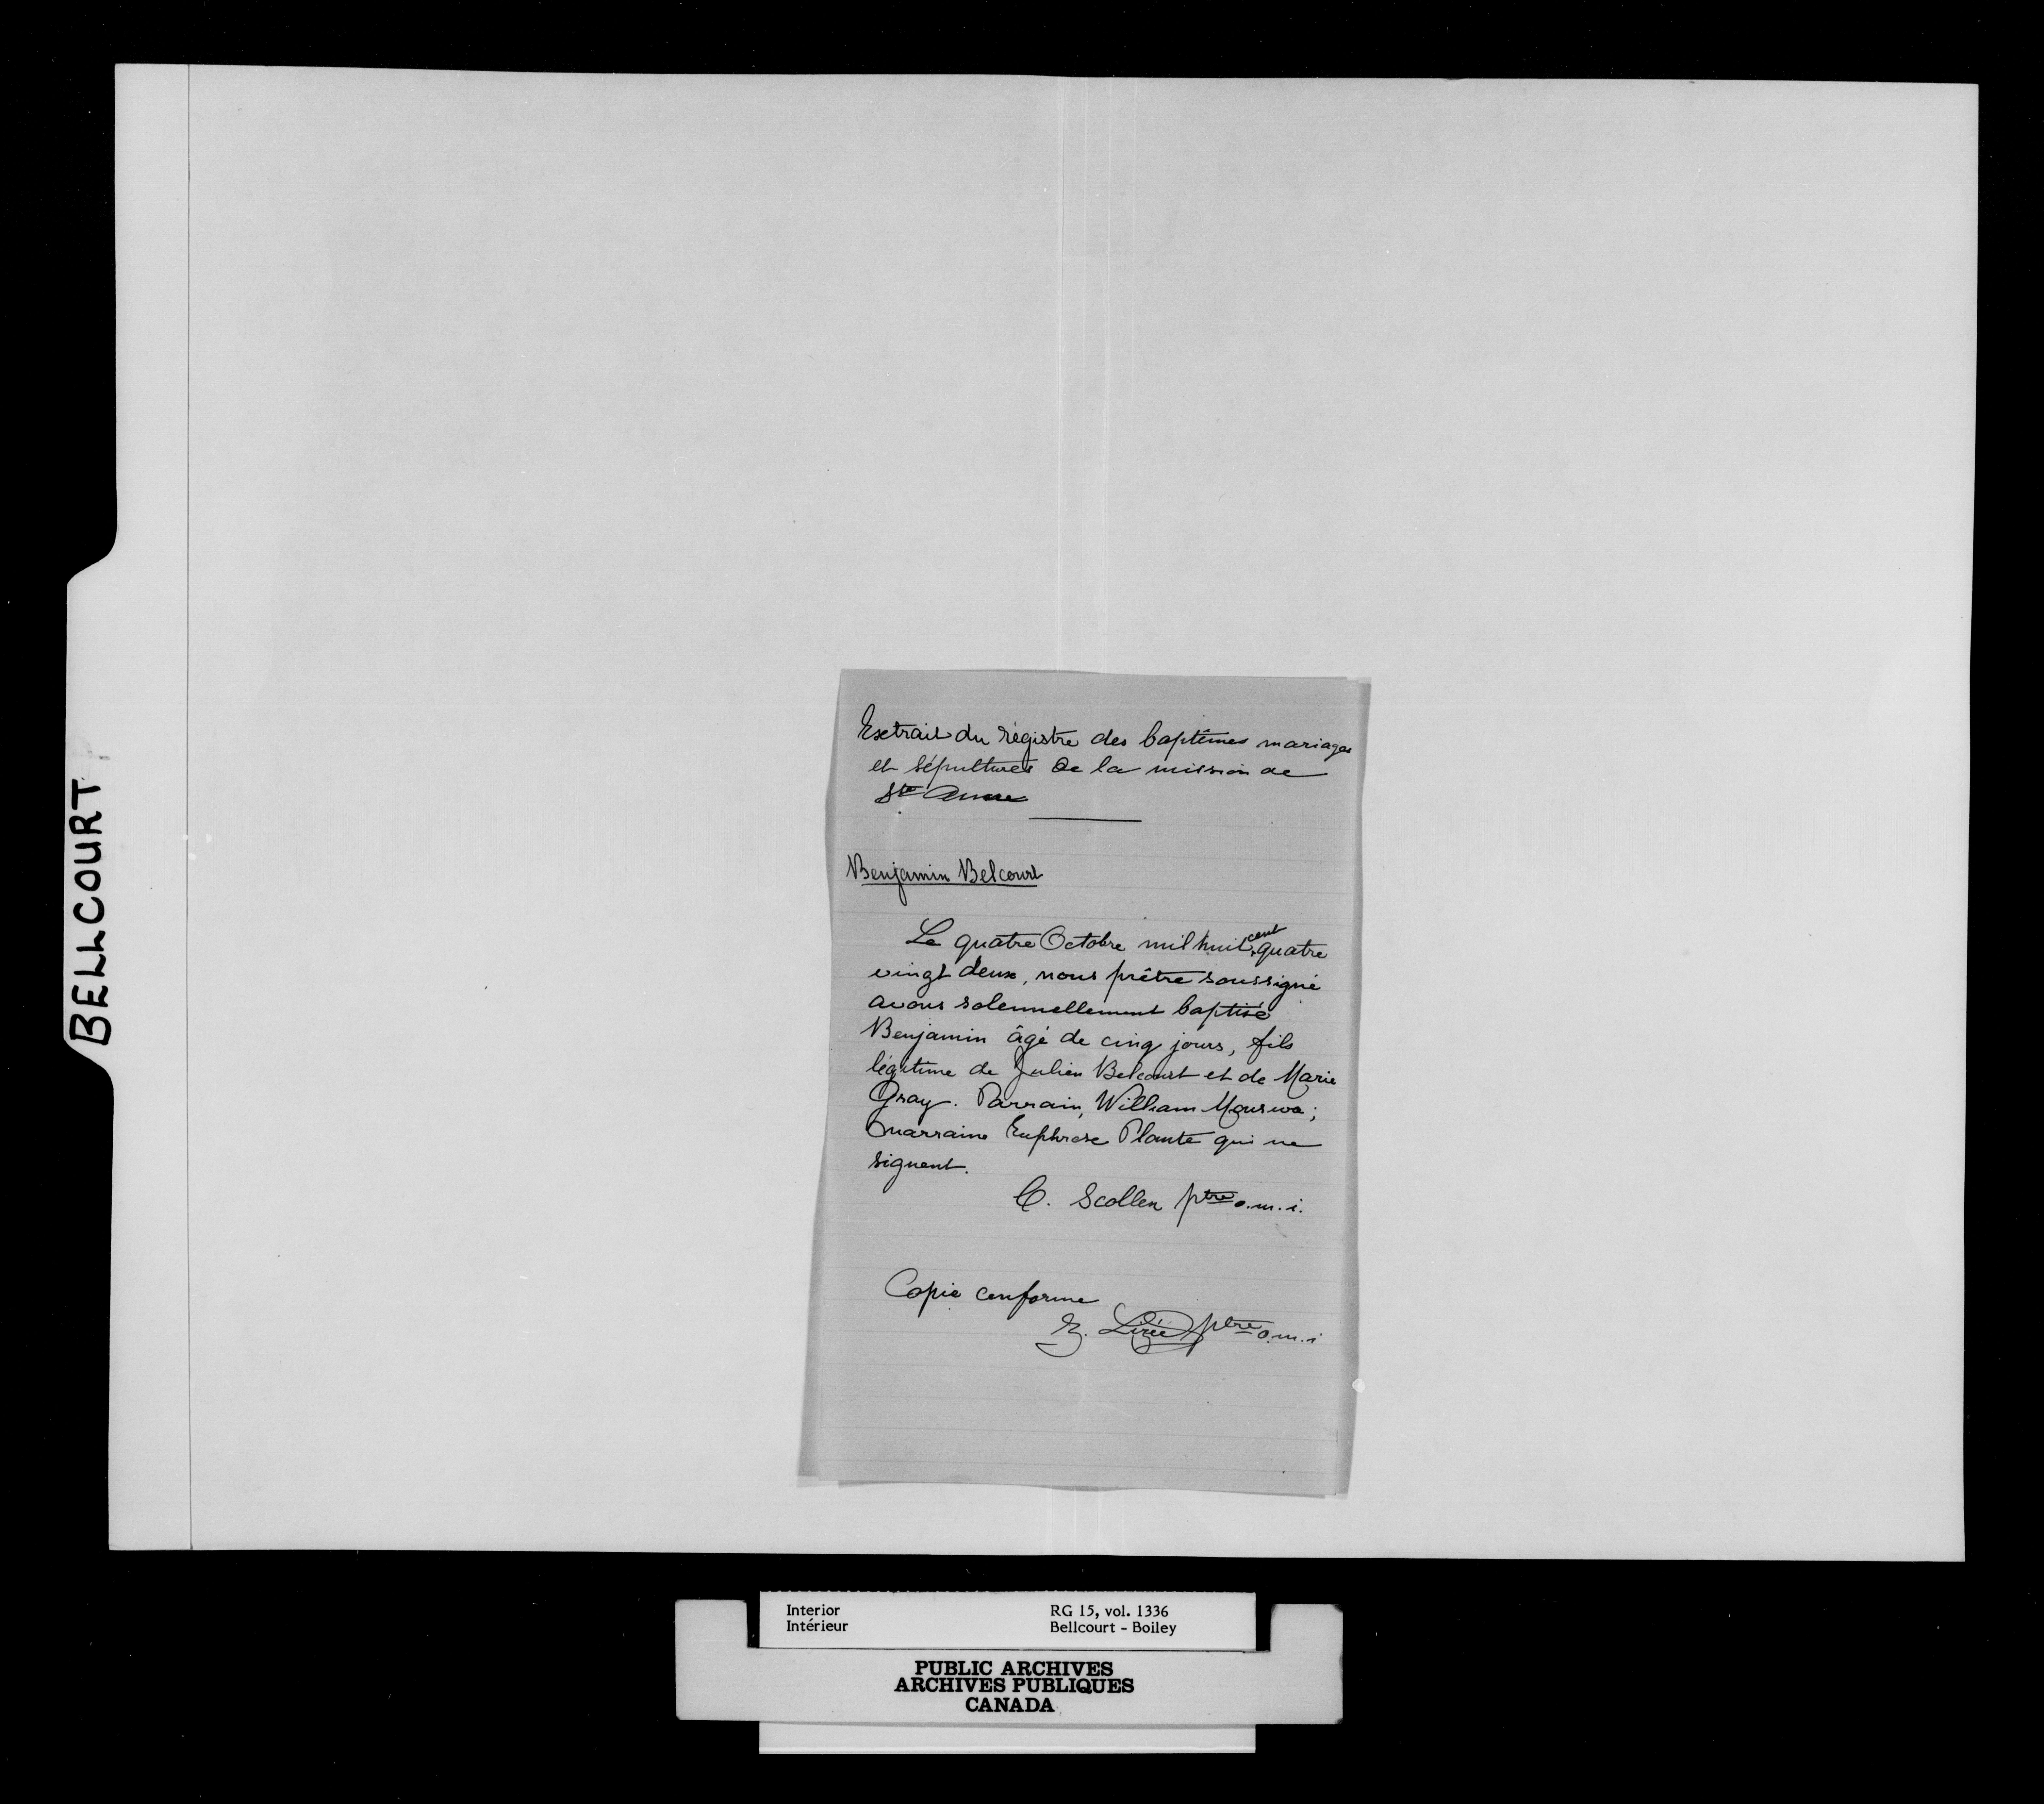 BELLCOURT
Extrait du régistre des baptêmes mariages
et sépultures de la mission de
Ste Anne
Benjamin Belcourt
Le quatre Octobre mil huit cent quatre
vingt deux, nous prêtre soussigné
avons solennellement baptisé
Benjamin âgé de cinq jours, fils
légitime de Julien Belcourt et de Marie
Gray. Parrain, William Mouswa;
marraine Euphrose Plante qui ne
signent.
C. Scollen ptre o.m.i.
Copie conforme
Z. Lizée ptre o.m.i
Interior RG 15, vol. 1336
Intérieur Bellcourt - Boiley
PUBLIC ARCHIVES
ARCHIVES PUBLIQUES
CANADA